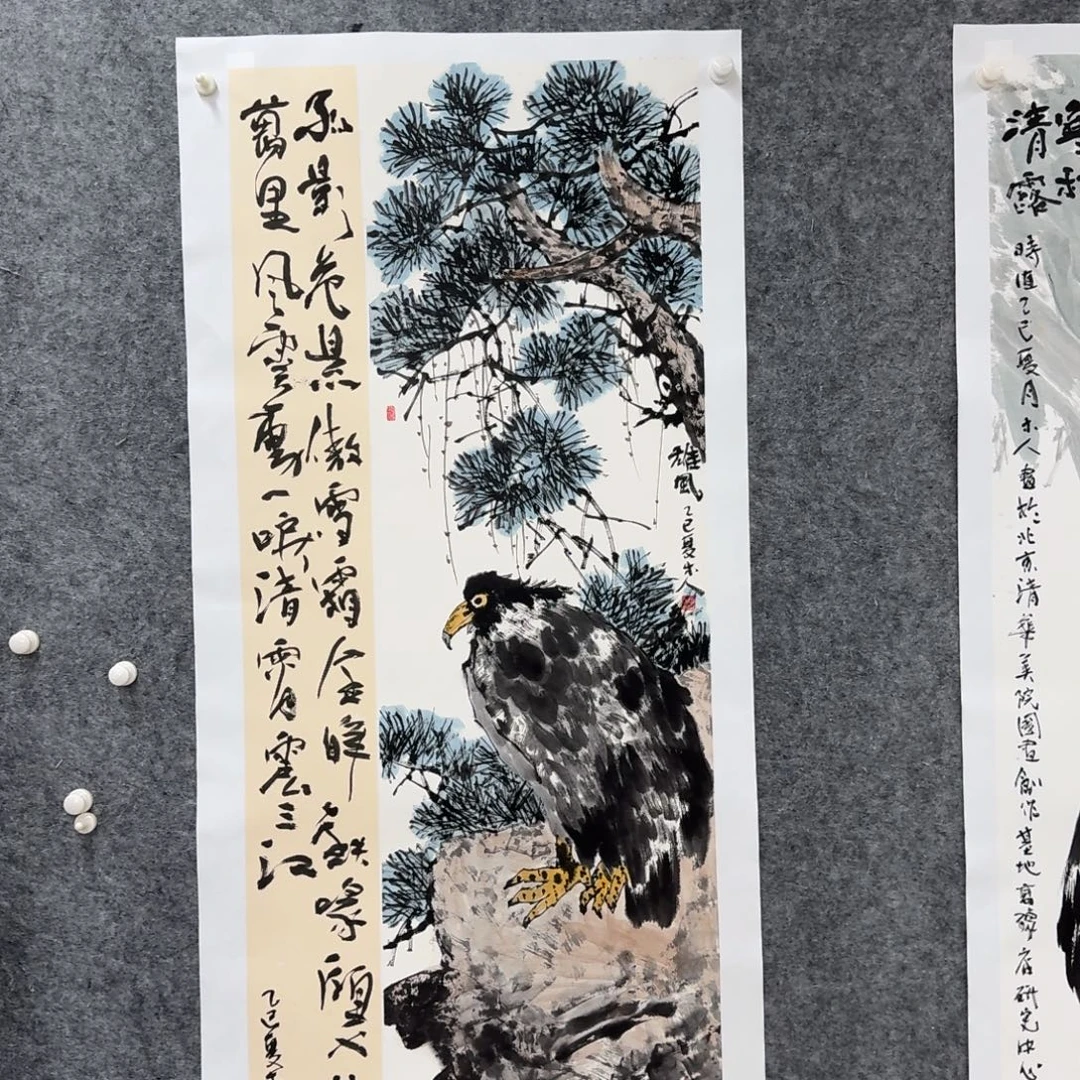 孤影危悬傲雪霜金眸鉄喙顧八
萬里风雲動一唳清霄震三江
乙巳夏
雄风
乙巳夏木人
清露
時值乙巳夏月木人畫於北京清華美院國畫創作基地高研究中心